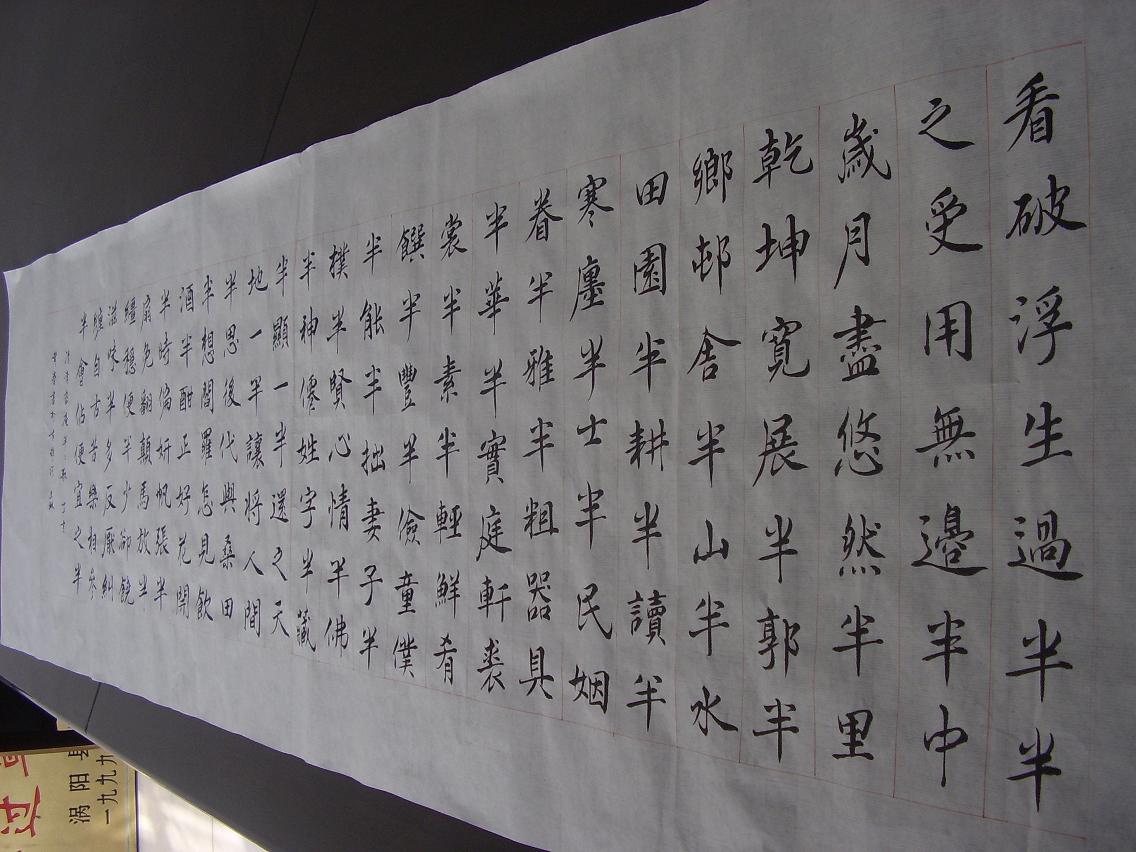 看破浮生過半半
之受用無邊半中
歲月盡悠然半里
乾坤寬展半郭半
鄉邨舍半山半水
田園半耕半讀半
寒廛半士半民姻
眷半雅半粗器具
半華半實庭軒裘
裳半素半輕鮮肴
饌半豐半儉童僕
半能半拙妻子半
樸半賢心情半佛
半神僊姓字半藏
半顯一半還之天
地一半讓將人間
半思後代與桑田
半想閻羅怎見飲
酒半酣正好花開
半時偏妍帆張半
扇免翻顛馬放半
韁穩便半少卻饒
滋味半多反厭糾
纏自古苦樂相參
半會佔便宜之半
涡阳县
一九九九